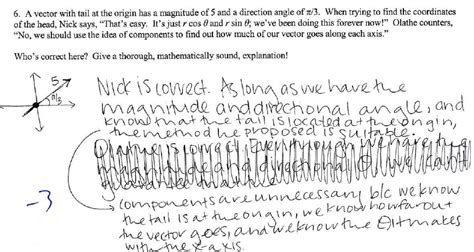 6. A vector with tail at the origin has a magnitude of 5 and a direction angle of π/3. When trying to find the coordinates
of the head, Nick says, “That’s easy. It’s just r cos θ and r sin θ; we’ve been doing this forever now!” Olathe counters,
“No, we should use the idea of components to find out how much of our vector goes along each axis.”
Who’s correct here? Give a thorough, mathematically sound, explanation!
5
π/3
Nick is correct. As long as we have the
magnitude and directional angle, and
know that the tail is located at the origin,
the method he proposed is suitable.
Olathe is correct. Even though we have the
magnitude and directional θ, we can't
guarantee that the
-3
components are unnecessary b/c we know
the tail is at the origin, we know how far out
the vector goes, and we know the θ it makes
with the x-axis.